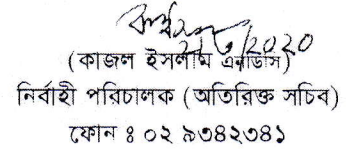 ২১/৬/২০২০
(কাজল ইসলাম এনডিসি)
নির্বাহী পরিচালক (অতিরিক্ত সচিব)
ফোন ঃ ০২ ৯৩৪২৩৪১